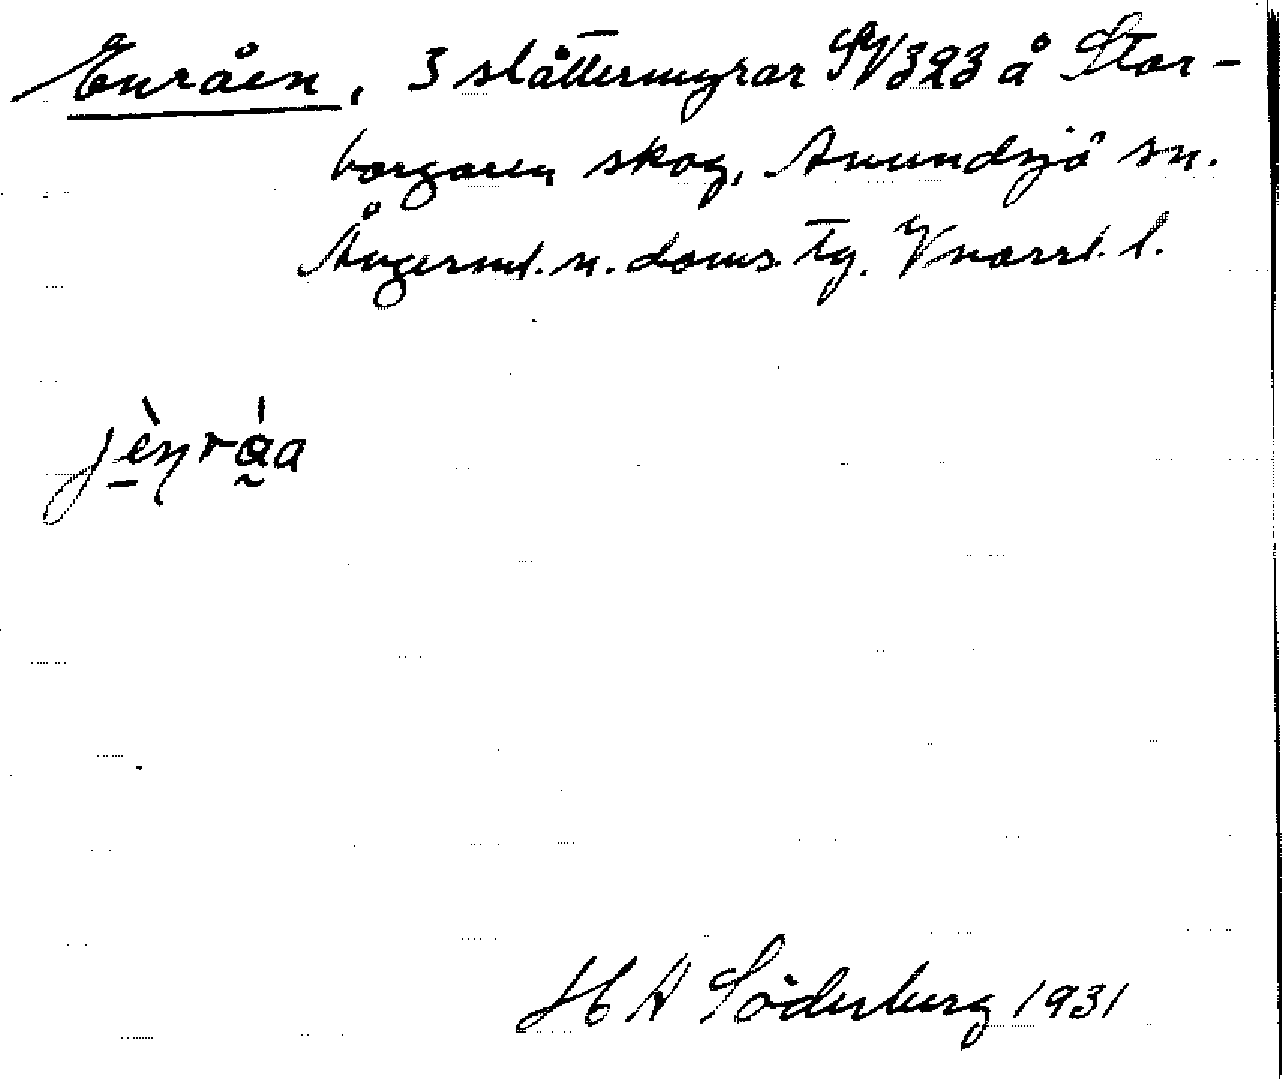 Enråen, 3 slåttermyrar SV 323 å Stor-
borgaren skog, Anundsjö sn.
Ångerml. n. doms. Tg. Vnorrl. l.
jènráa
H A Söderberg 1931